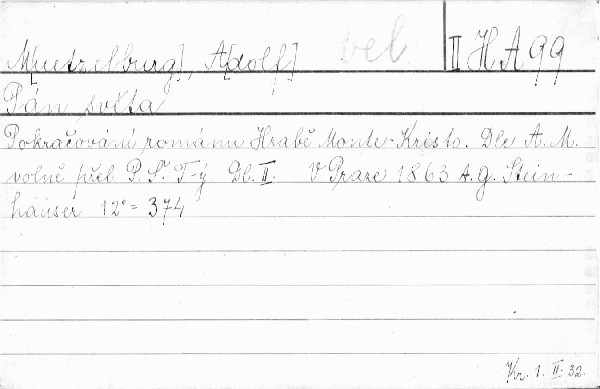 M[uetzelburg], A[dolf] bel II H A 99
Pán světa
Pokračování románu Hrabě Monte-Kristo. Dle A. M.
volně přel. P. S. T-ý. Dl. II. V Praze 1863 A. G. Stein-
hauser 12° = 374
Kr. 1. II. 32.